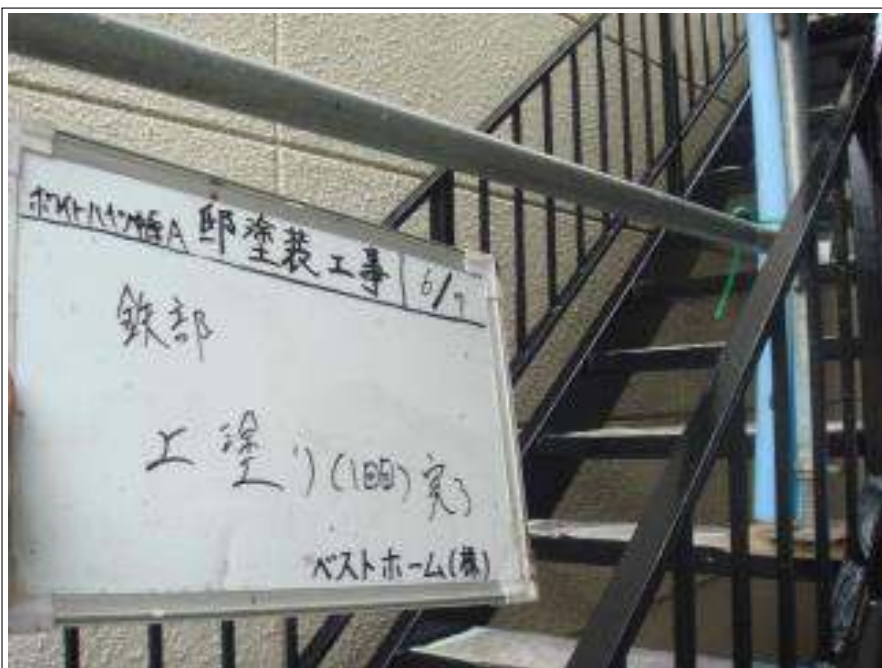 ホワイトハイツ A 邸塗装工事 6/7
鉄部
上塗り(1回)完了
ベストホーム(株)